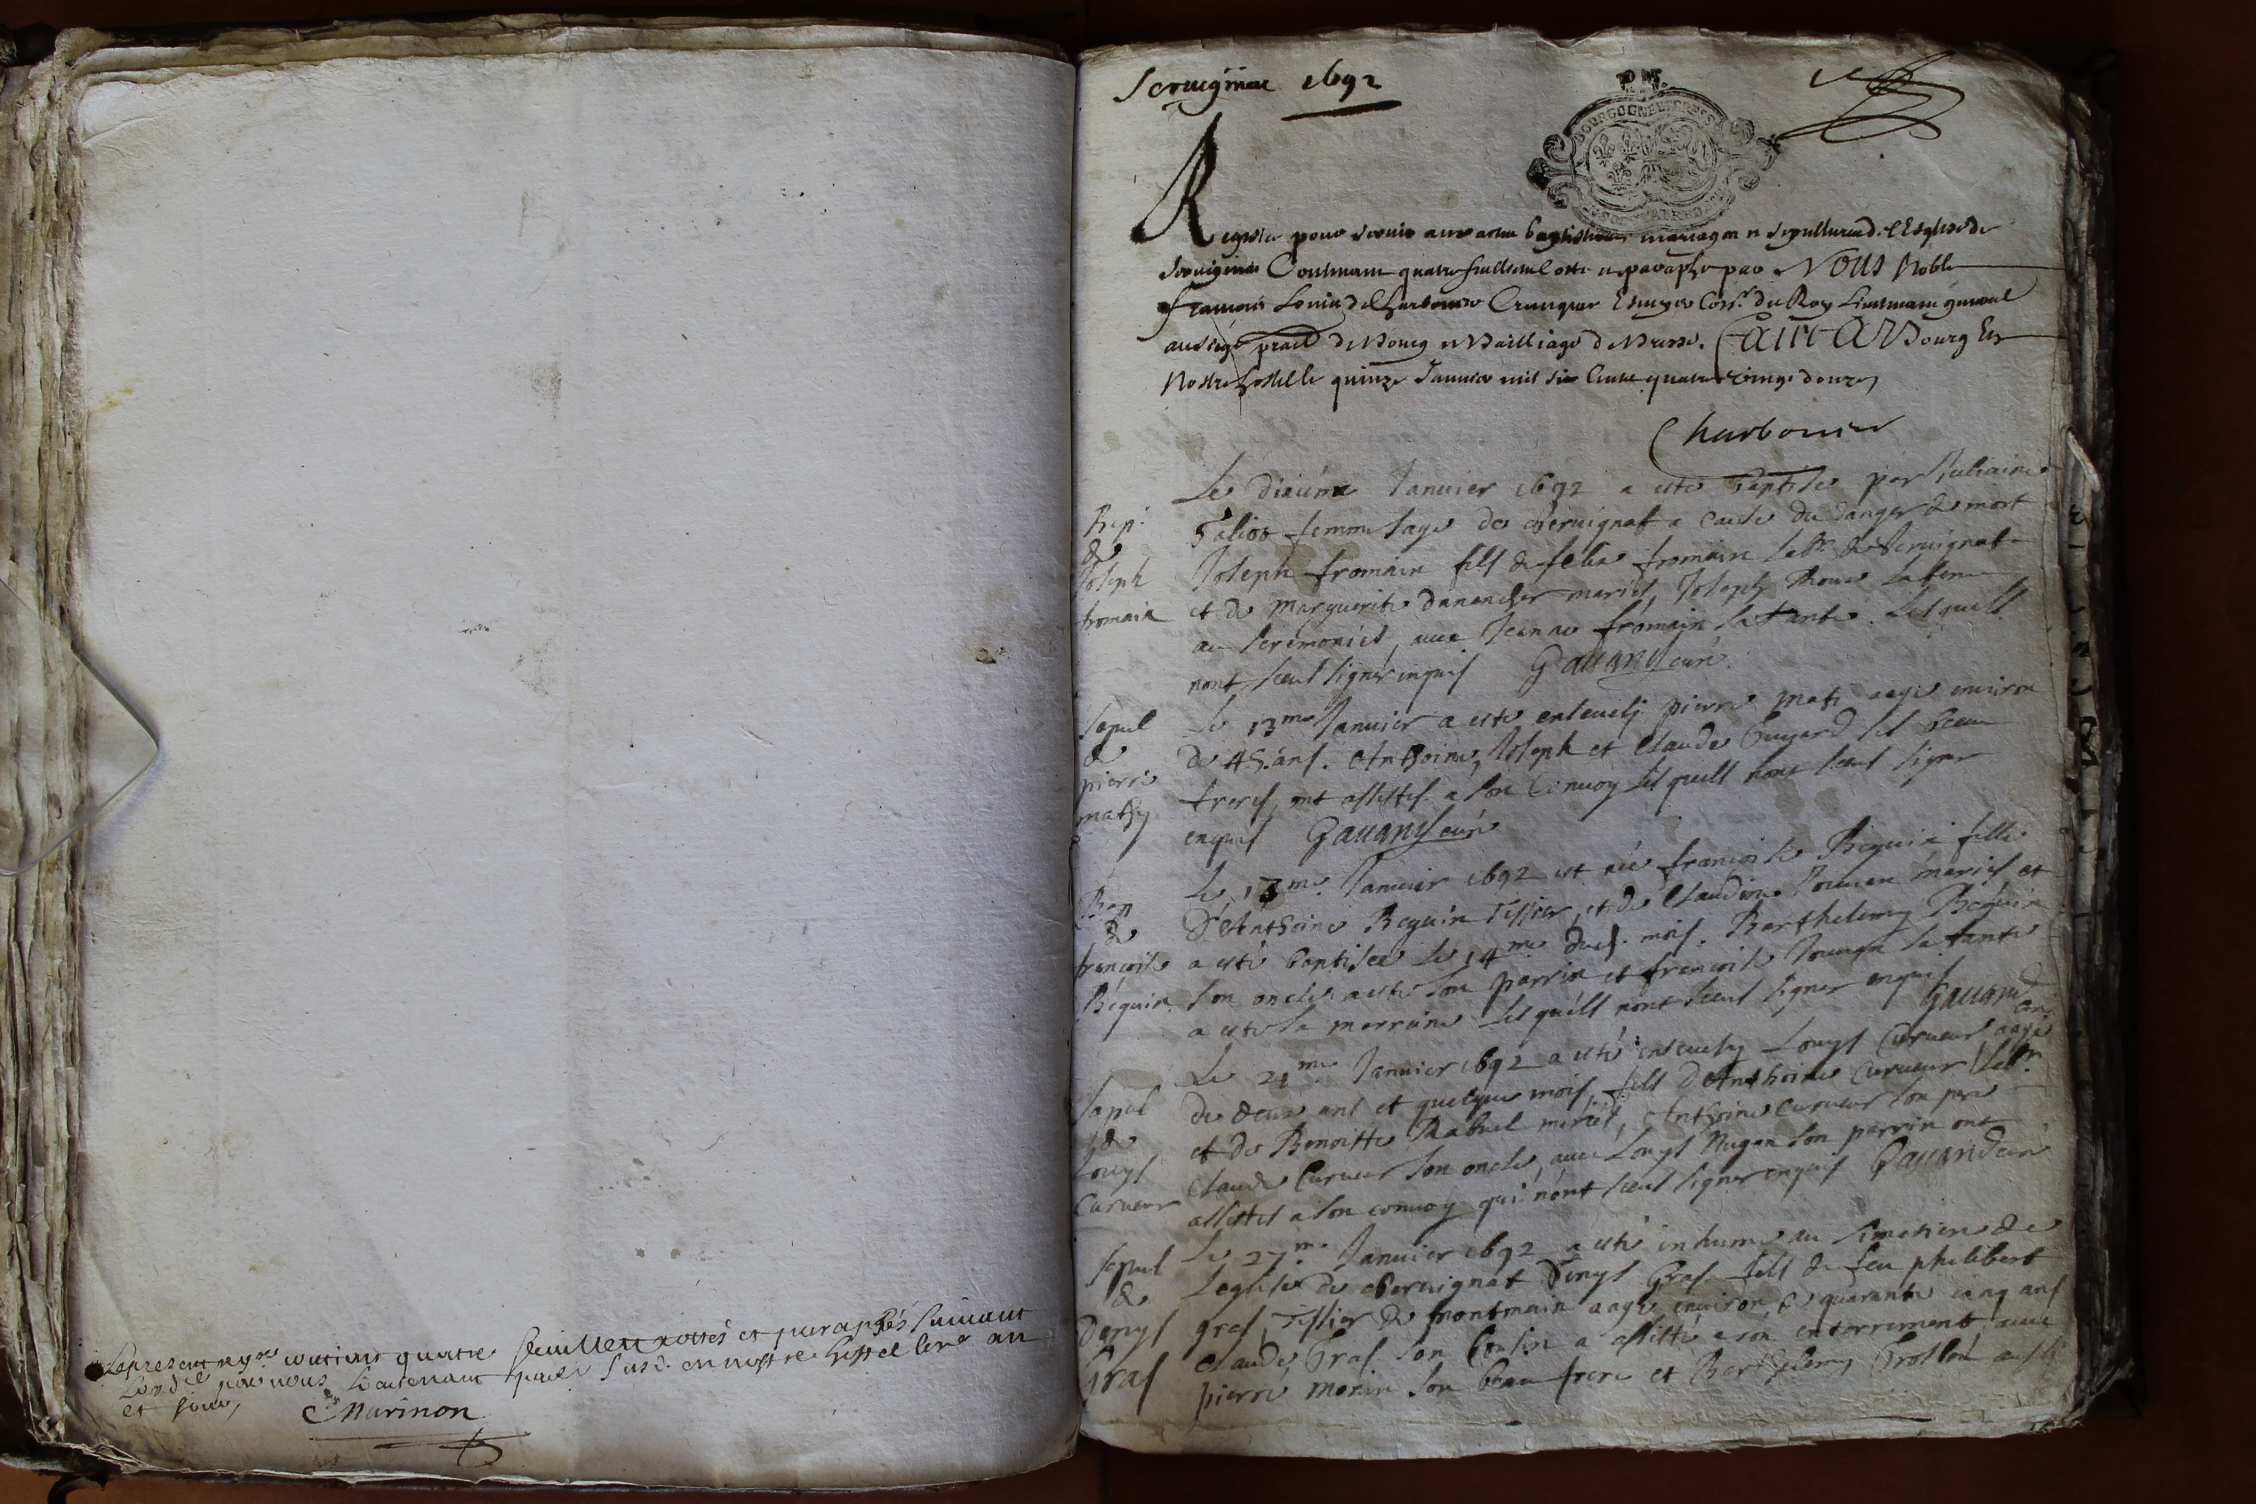 Le present regre contient quatre feuillets cottés et paraphés suivant
par nous Lieutenant susd. en nostre hostel les an
et jour,
Marinon
Servignat 1692
BOURGOGNE ET BRESSE
Registre pour servir aux actes baptistaires mariages et sepultures de l'Esglise de
Servignat Contenant quatre feuillets cotté et paraphé par NOUS Noble
François Louis de Charbonnier Crangeac Escuyer Conser du Roy Lieutenant general
au siege praesl de Bourg et Bailliage de Bresse. FAIT A Bourg En
Nostre hostel le quinze Janvier mil six Cents quatre vingt douze
Charbonier
Bap.
de
Joseph
fromain
Le dixiéme Januier 1692 a esté baptisé par
femme sage de Servignat a cause du danger de mort
Joseph fromain fils de felix fromain labr. de Seruignat
et de marguerite danancher mariés, Joseph
au ceremonies, auec Jeanne fromain sa tante. Lesquells
nont sceut signer enquis Gauand curé.
Sepul
de
pierre
mathy
Le 13me Januier a esté enseuely pierre mati aagé enuiron
de 45 ans. Anthoine, Joseph et Claude Guyard ses beau
freres, ont assistes a son conuoy lesquells nont sceut signer
enquis Gauand curé
Bap
de
francoise
Béquin
Le 13me Januier 1692 est née francoise Bequin fille
D'Anthoine Bequin Tissier, et de Claudine Jouuan mariés et
a esté baptisée le 14me dud. mois. Barthelemy Béquin
son oncle a esté son parrin et francoise Jouuan sa tante
a esté sa marrine lesquells nont sceut signer enquis Gauand curé
Sepul
de
Louys
Curueur
Le 21me Januier 1692 a esté enseuely Louys Curueur aagé
de deux ans et quelque mois, fils d'Anthoine Curueur labr.
et de Benoitte Rabuel mariés, Anthoine Curueur son pere
Claude Curueur son oncle, auec Louys Nugon son parrin ont
assistes a son conuoy qui n'ont sceut signer enquis Gauand curé
Sepul
de
Denys
Gras
Le 27me Januier 1692 a esté inhumé au simetiere de
Leglise de Seruignat Denys Gras fils de feu philibert
gras, Tissier de montmain aagé enuiron de quarante cinq ans
Claude Gras son Cousin a assisté a son enterrement auec
pierre morin son beau frere et Barthelemy aussi